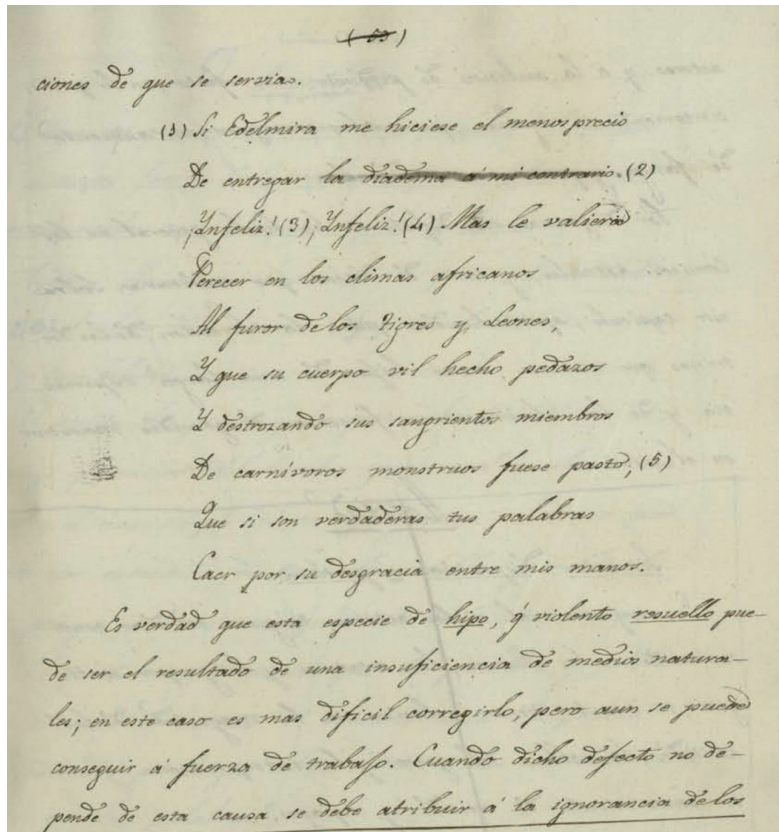 (53)
ciones de que se servias.
(1) Si Edelmira me hiciese el menosprecio
De entregar la diadema á mi contrario. (2)
¡Ynfeliz! (3) ¡Ynfeliz! (4) Mas le valiera
Perecer en los climas africanos
Al furor de los tigres y Leones,
Y que su cuerpo vil hecho pedazos
Y destrozando sus sangrientos miembros
De carnívoros monstruos fuese pasto, (5)
Que si son verdaderas tus palabras
Caer por su desgracia entre mis manos.
Es verdad que esta especie de hipo, y violento resuello pue-
de ser el resultado de una insuficiencia de medios natura-
les; en este caso es mas dificil corregirlo, pero aun se puede
conseguir á fuerza de trabajo. Cuando dicho defecto no de-
pende de esta causa se debe atribuir á la ignorancia de los